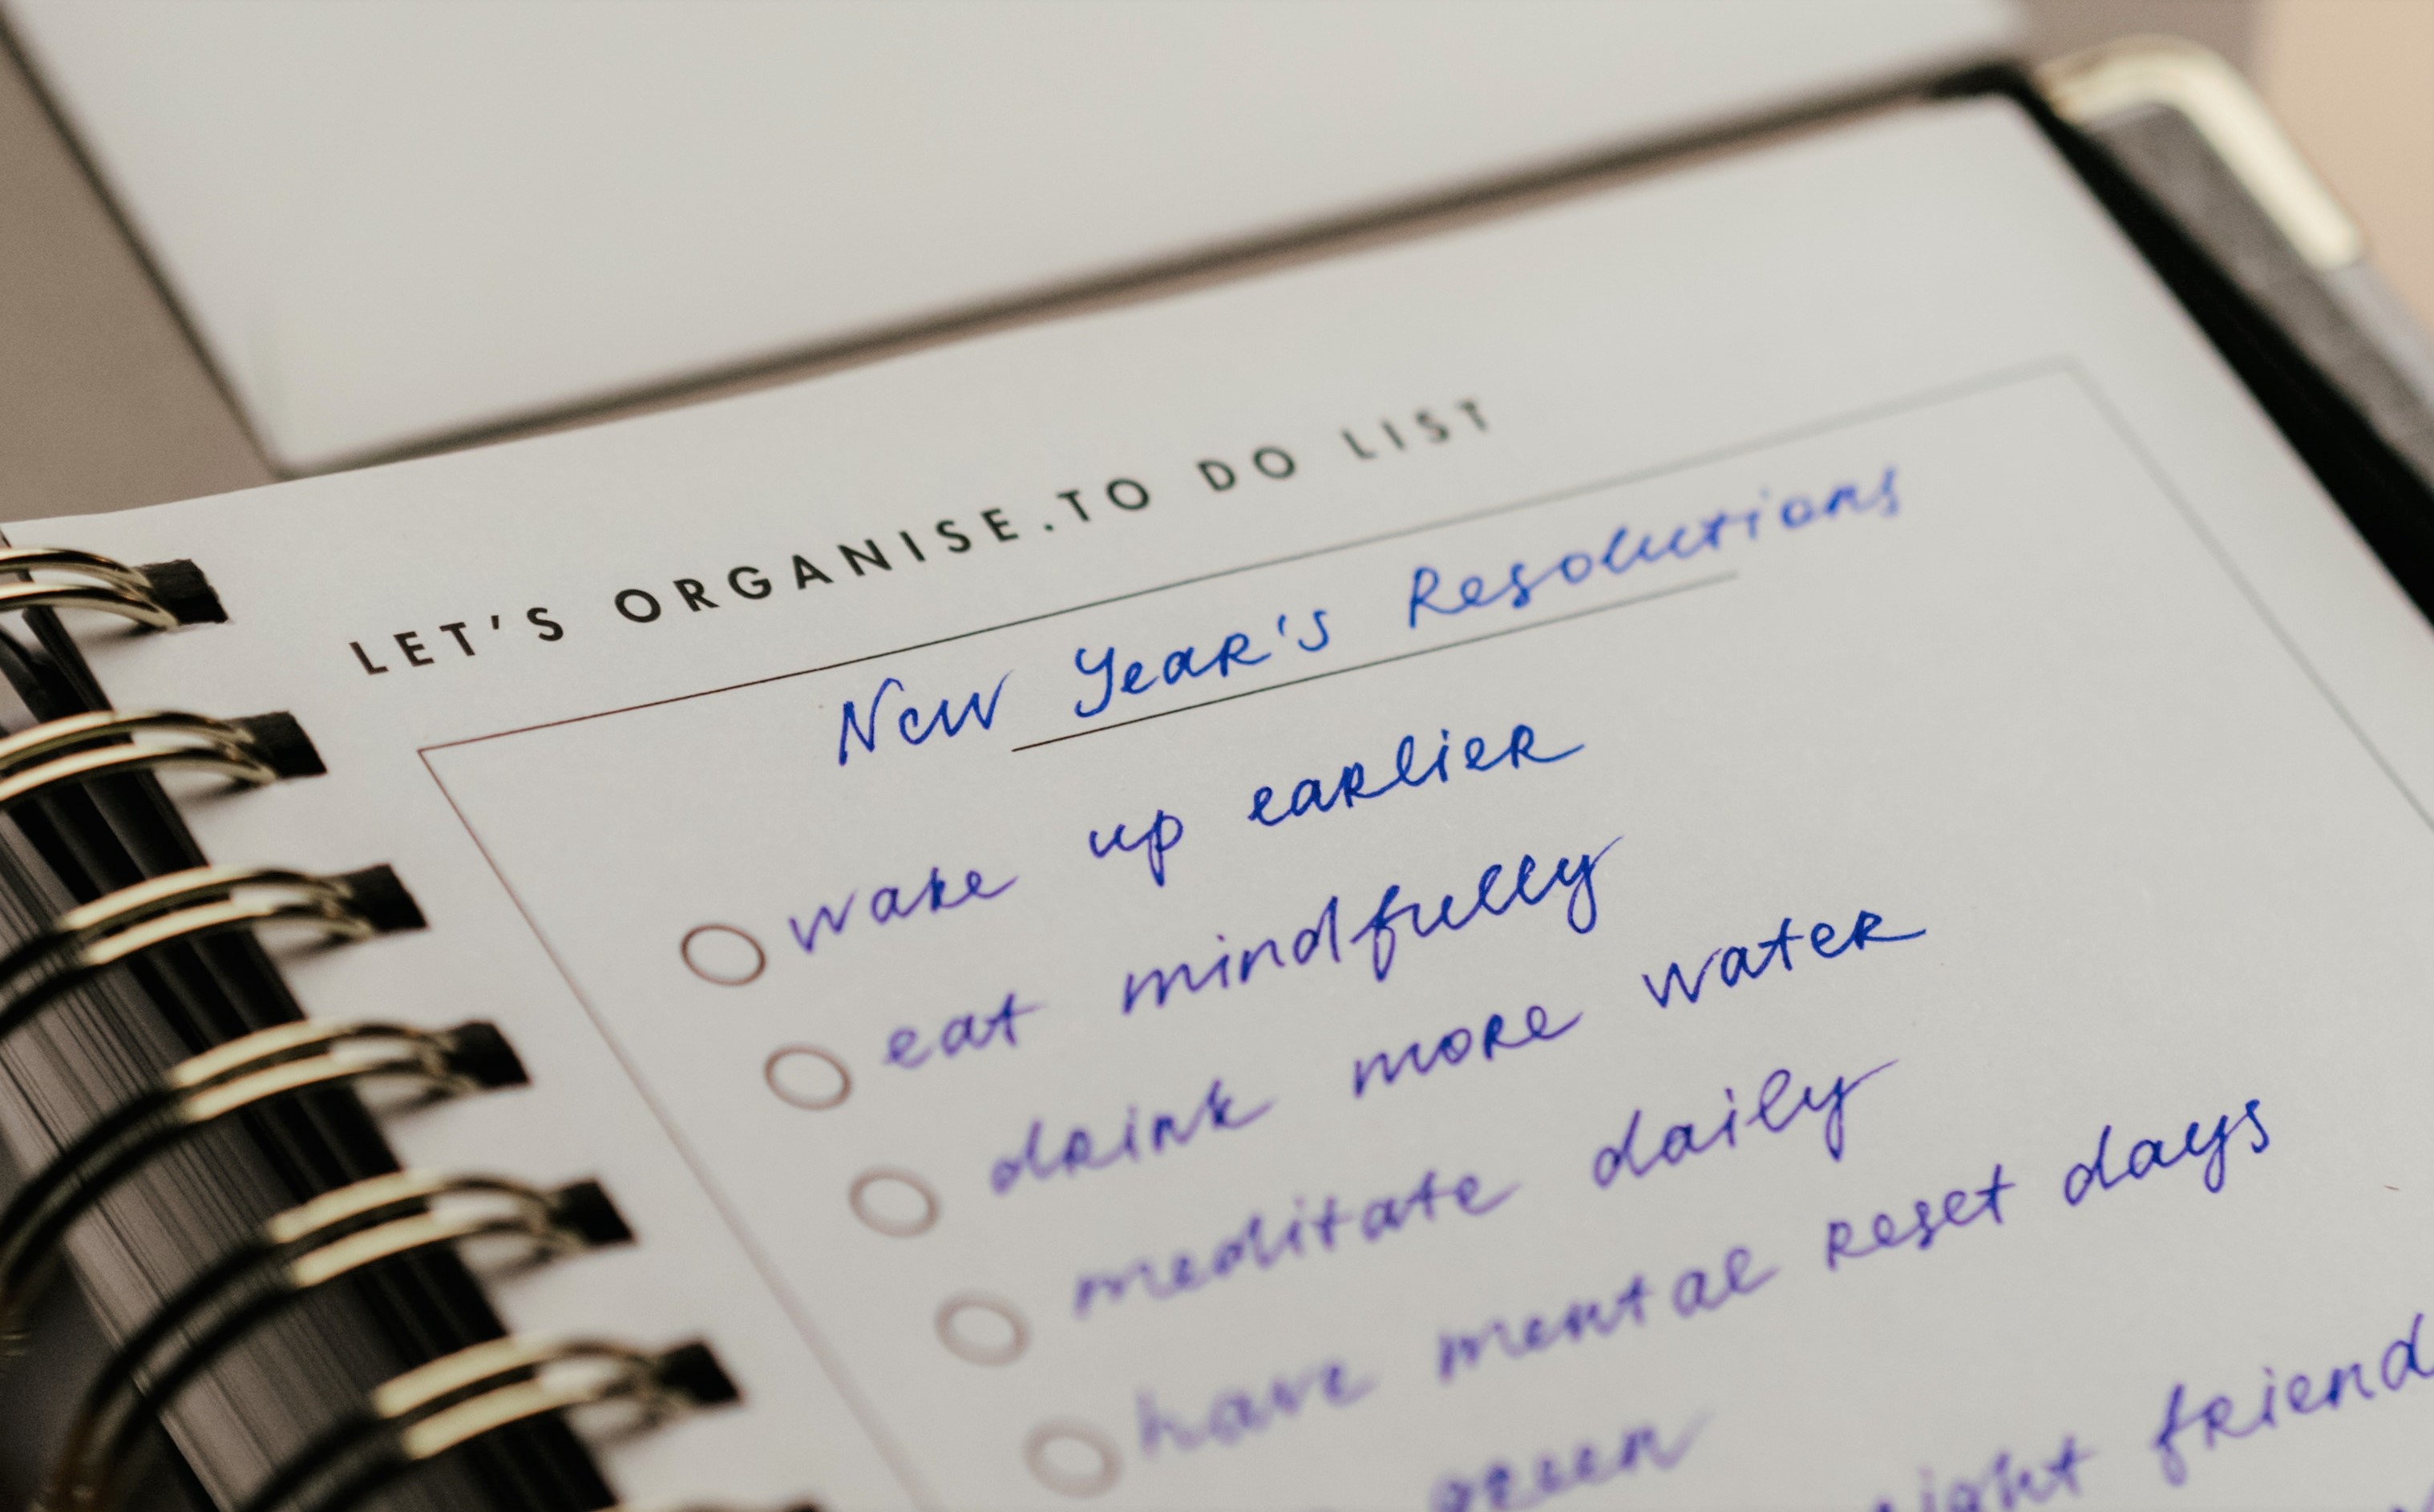 LET'S ORGANISE.TO DO LIST
New Year's Resolutions
wake up earlier
eat mindfully
drink more water
meditate daily
have mental reset days
green
friend